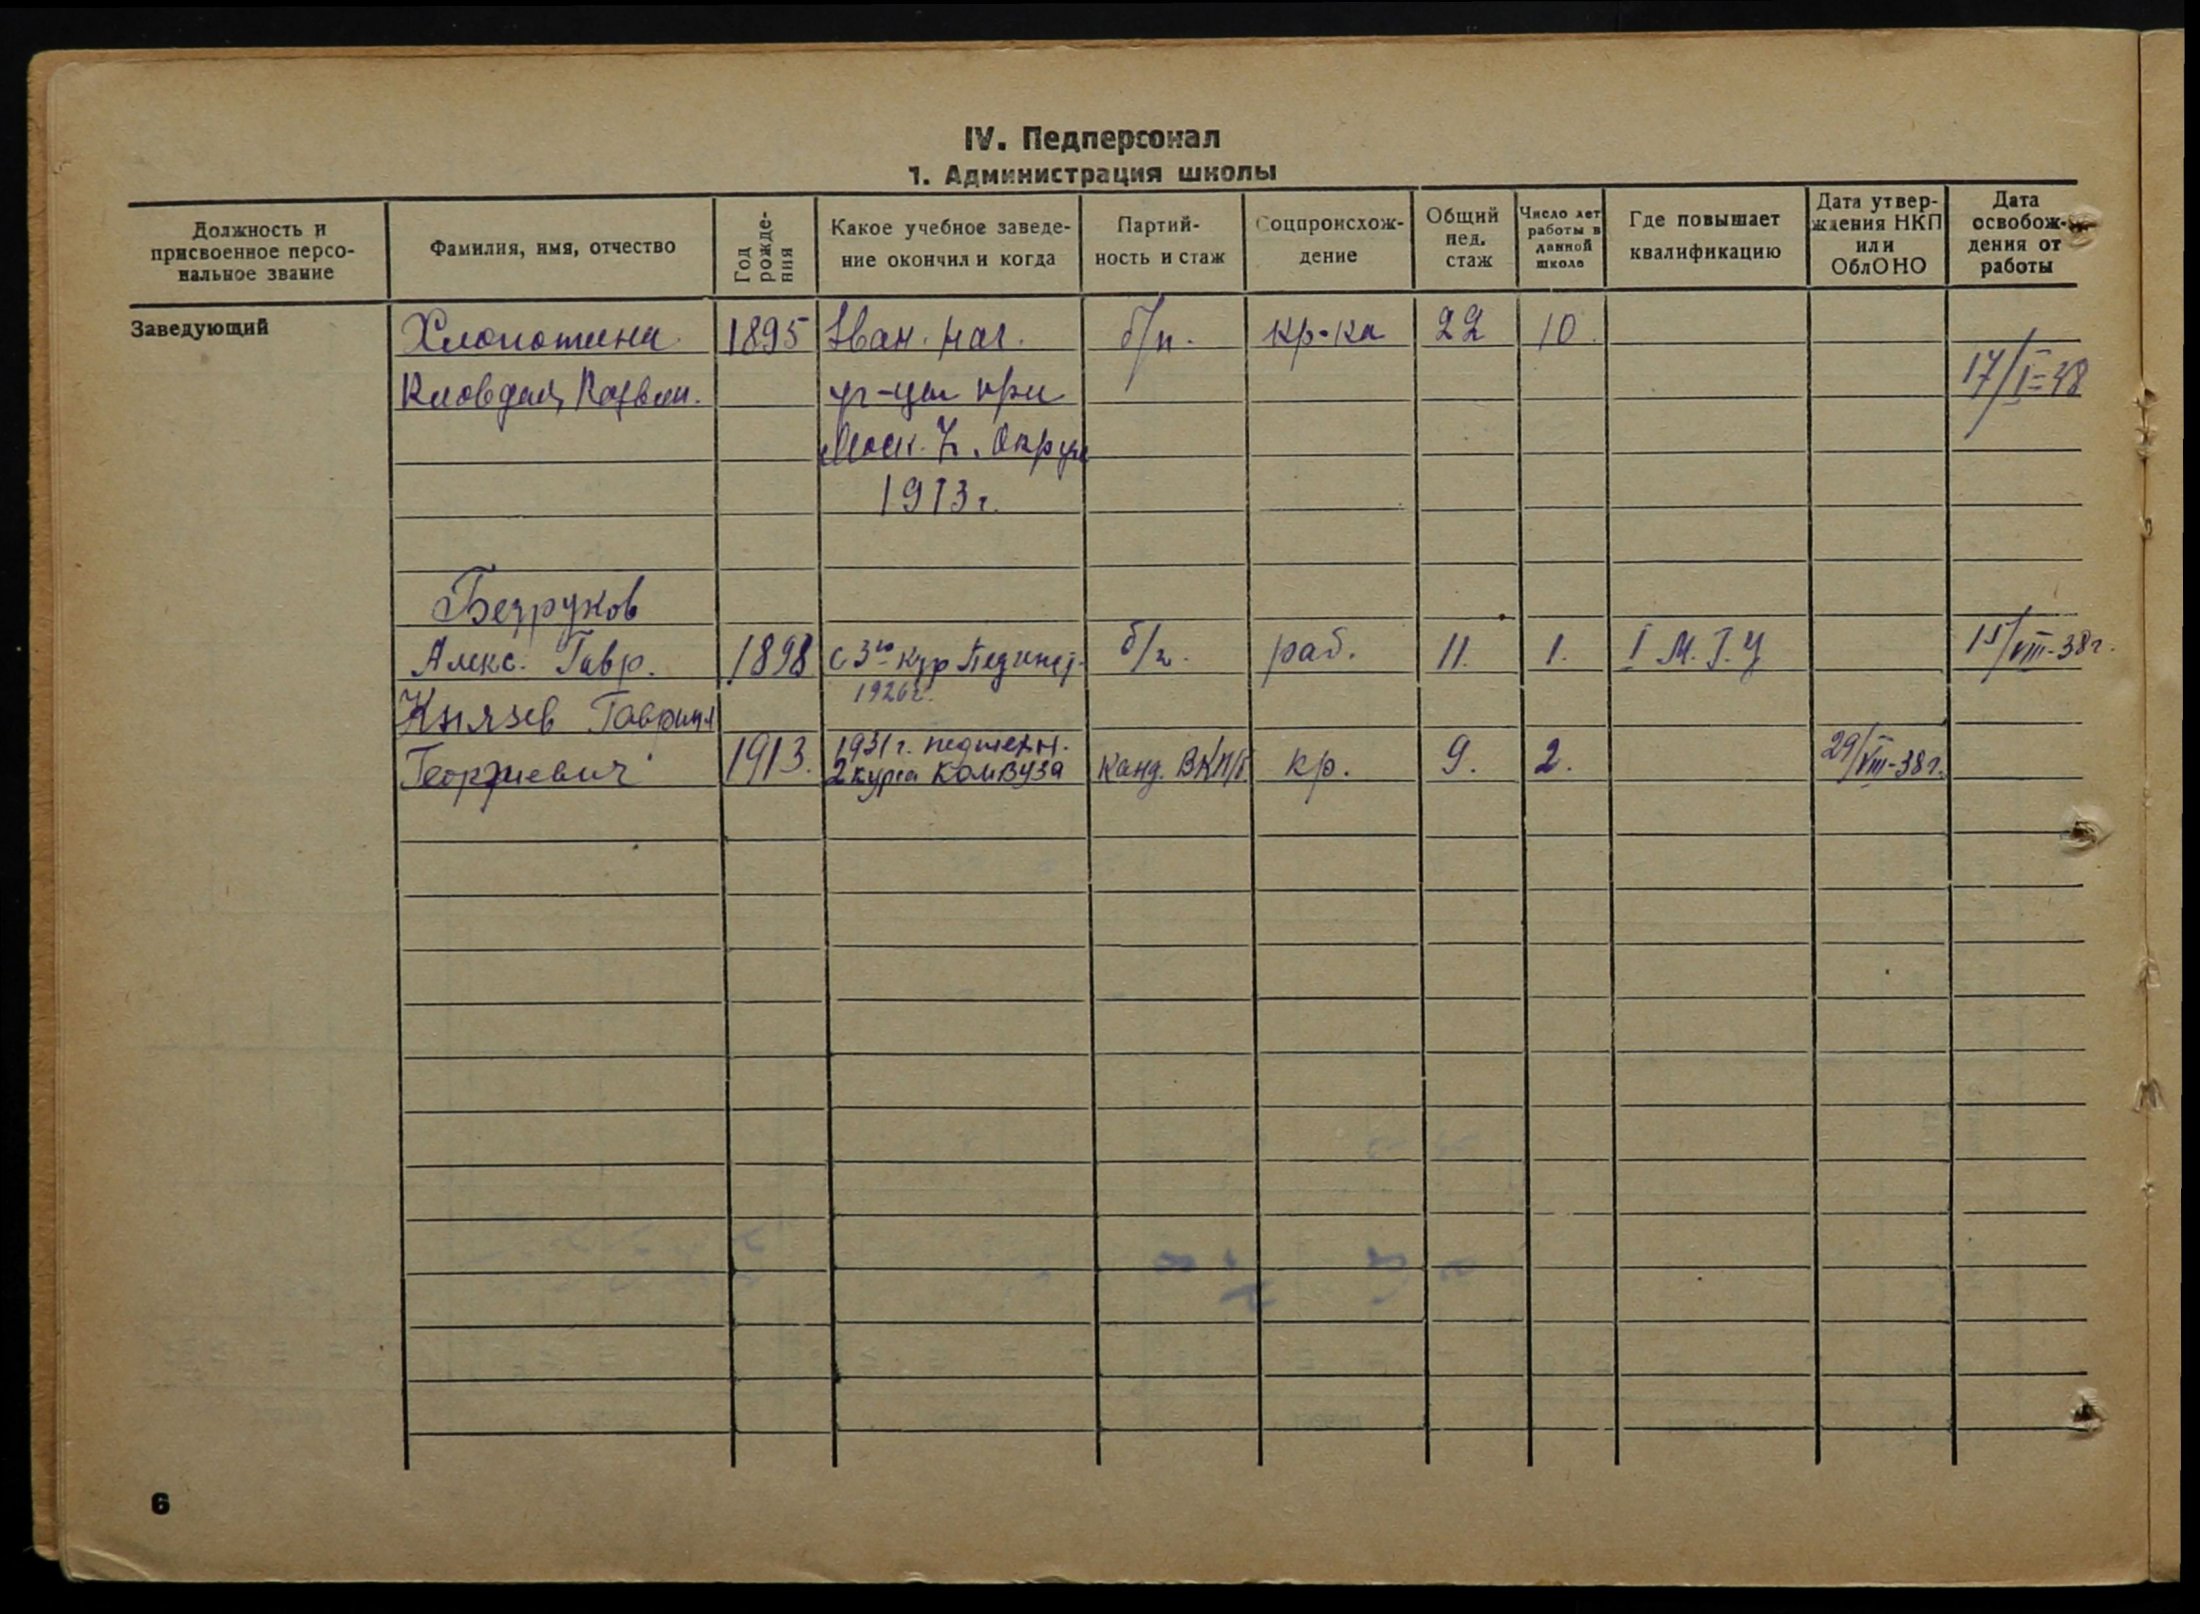 IV. Педперсонал
1. Администрация школы
Должность и присвоенное персональное звание
Фамилия, имя, отчество
Год рождения
Какое учебное заведение окончил и когда
Партийность и стаж
Соцпроисхождение
Общий пед. стаж
Число лет работы в данной школе
Где повышает квалификацию
Дата утверждения НКП или ОблОНО
Дата освобождения от работы
Заведующий
Хлопотина 1895 Зван. нач. б/п. кр-ка 22 10.
уч-цы при 17/I-38
Моск. У. Округе
1913 г.
Безруков
Алекс. Гавр. 1898 с 3го кур Пединст. б/п. раб. 11. 1. I М.Г.У 15/VIII-38 г.
1926 г.
Князев Гавриил
Георгиевич 1913. 1931 г. педтехн. Канд. ВКП/б кр. 9. 2. 29/VIII-38 г.
2 курса КОМВУЗа
6